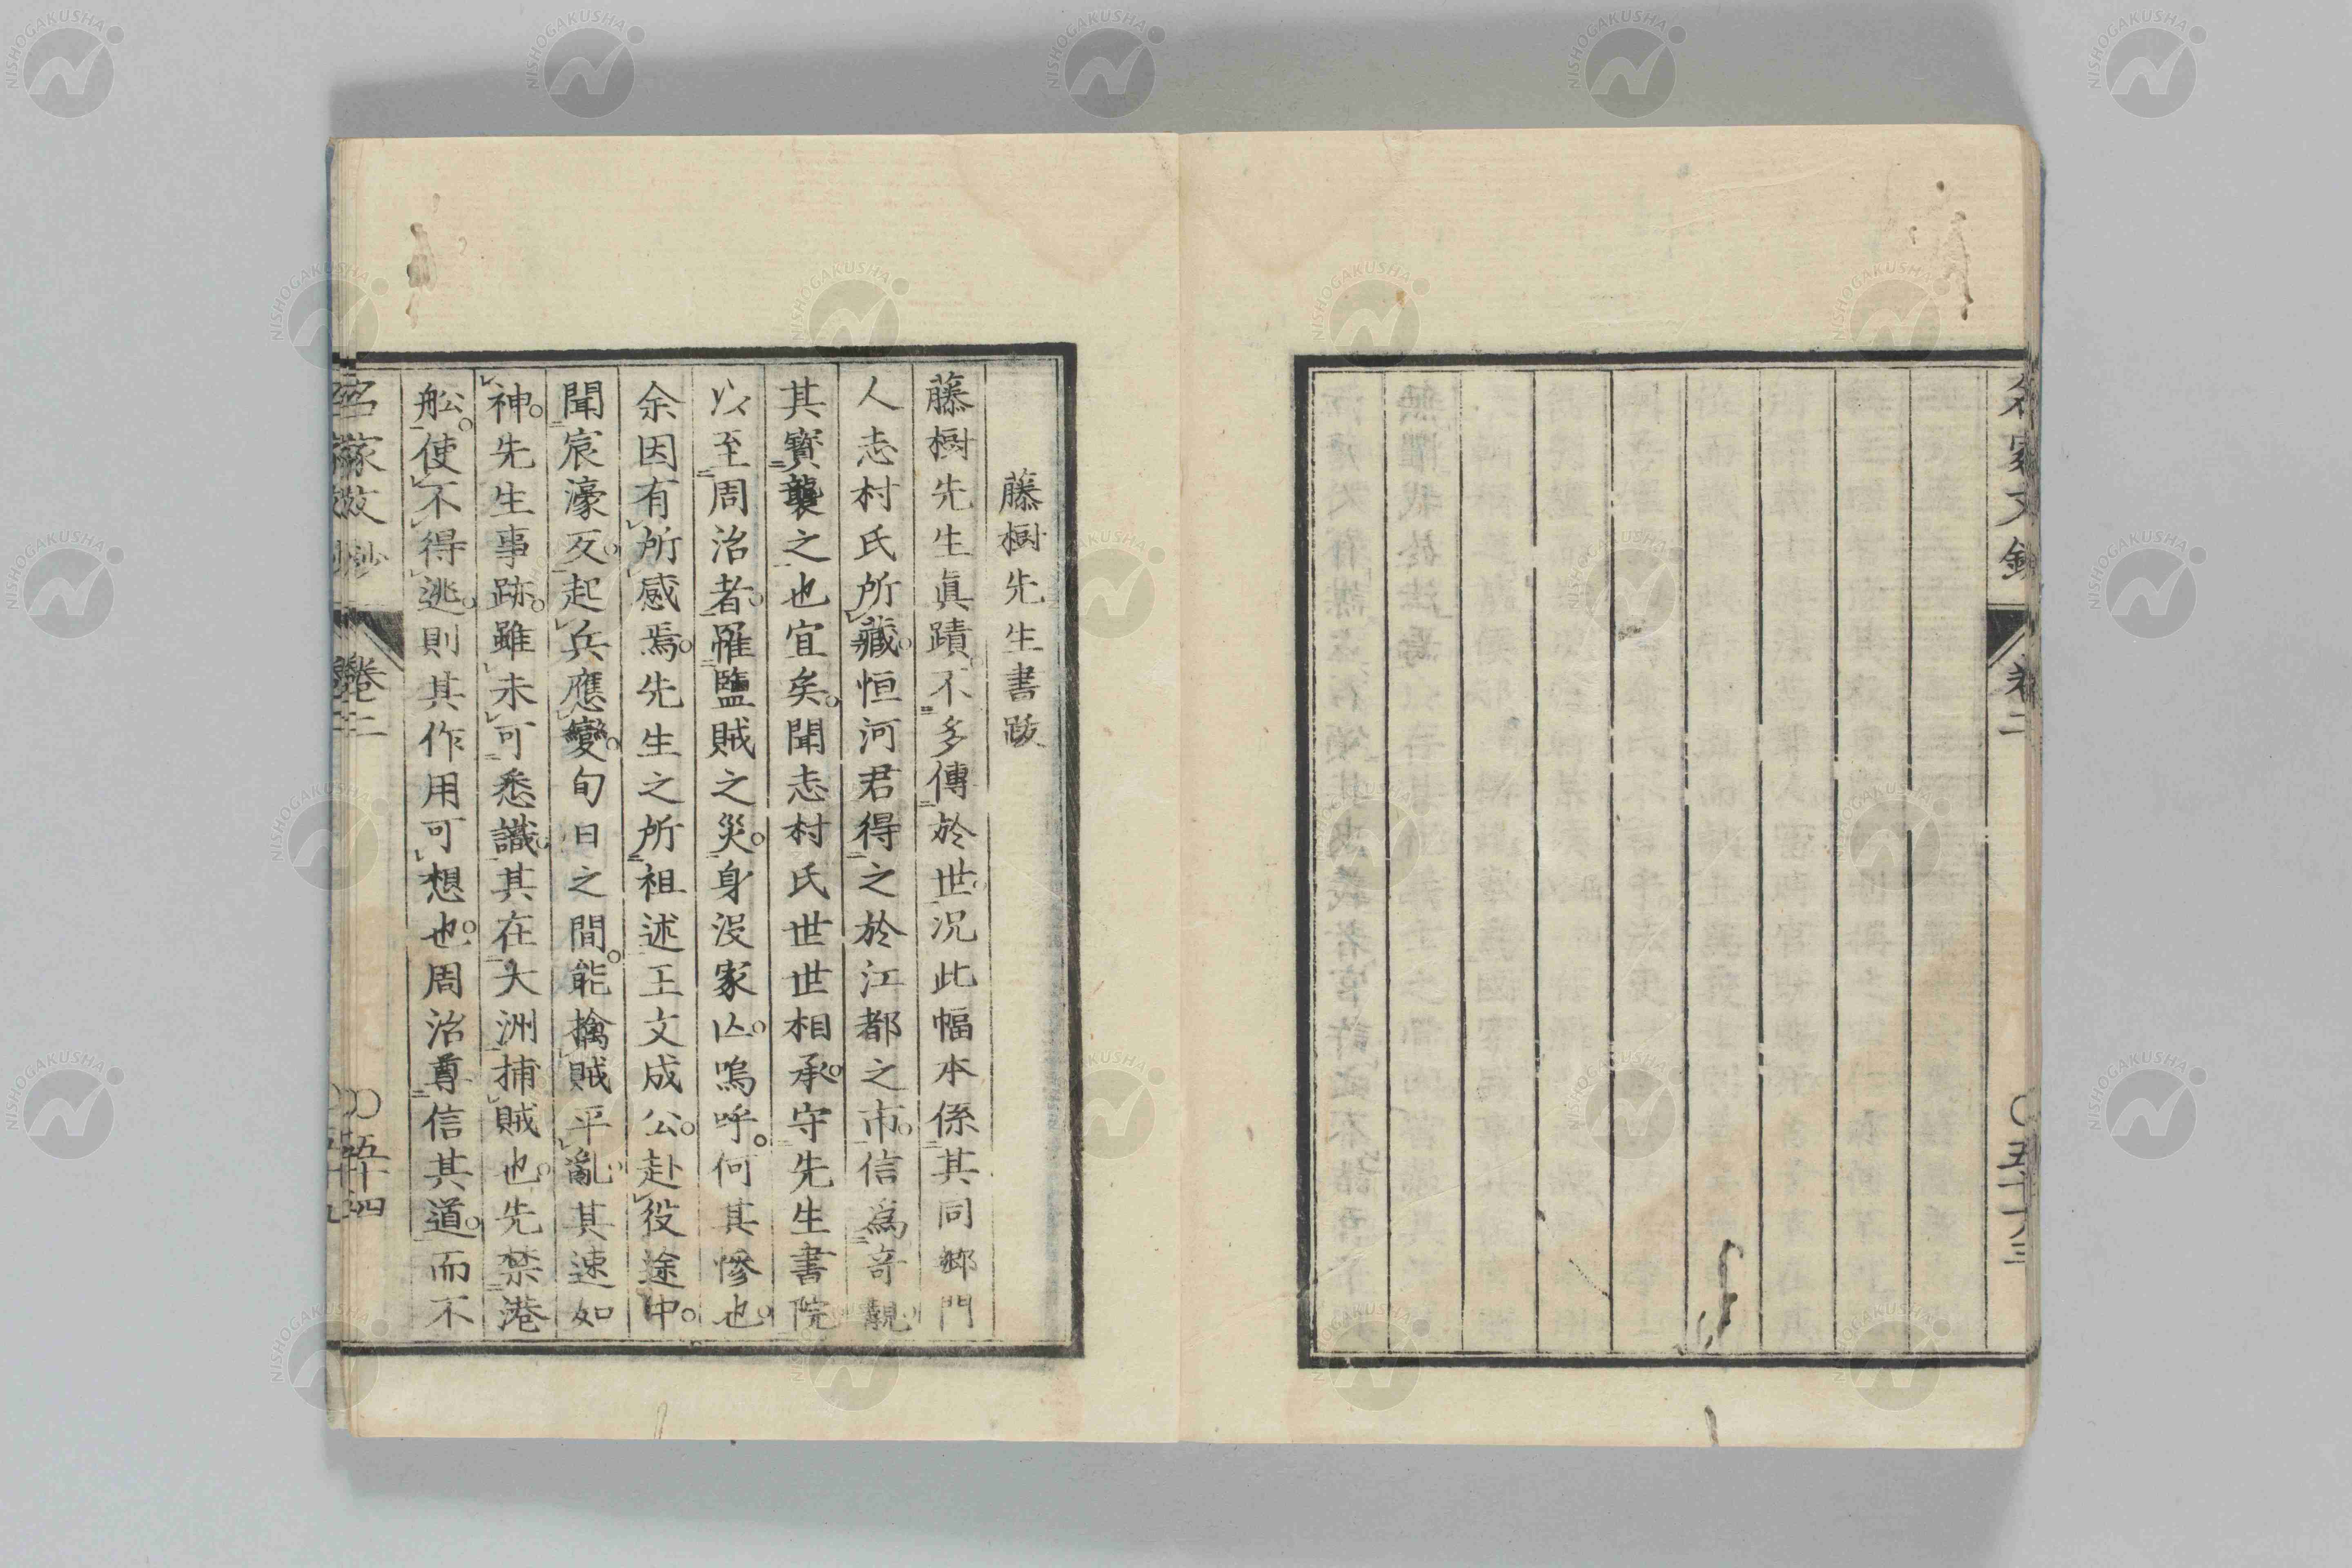 名家文鈔
卷二
○五十三
藤樹先生書跋
藤樹先生眞蹟不多傳於世况此幅本係其同鄉門
人志村氏所藏恒河君得之於江都之市信爲奇觀
其寳襲之也宜矣聞志村氏世世相承守先生書院
以至周治者罹鹽賊之災身沒家亾嗚呼何其慘也
余因有所感焉先生之所祖述王文成公赴役途中
聞宸濠反起兵應變旬日之間能擒賊平亂其速如
神先生事跡雖未可悉識其在大洲捕賊也先禁港
舩使不得逃則其作用可想也周治尊信其道而不
名家文鈔
卷二
○五十四
NISHOGAKUSHA